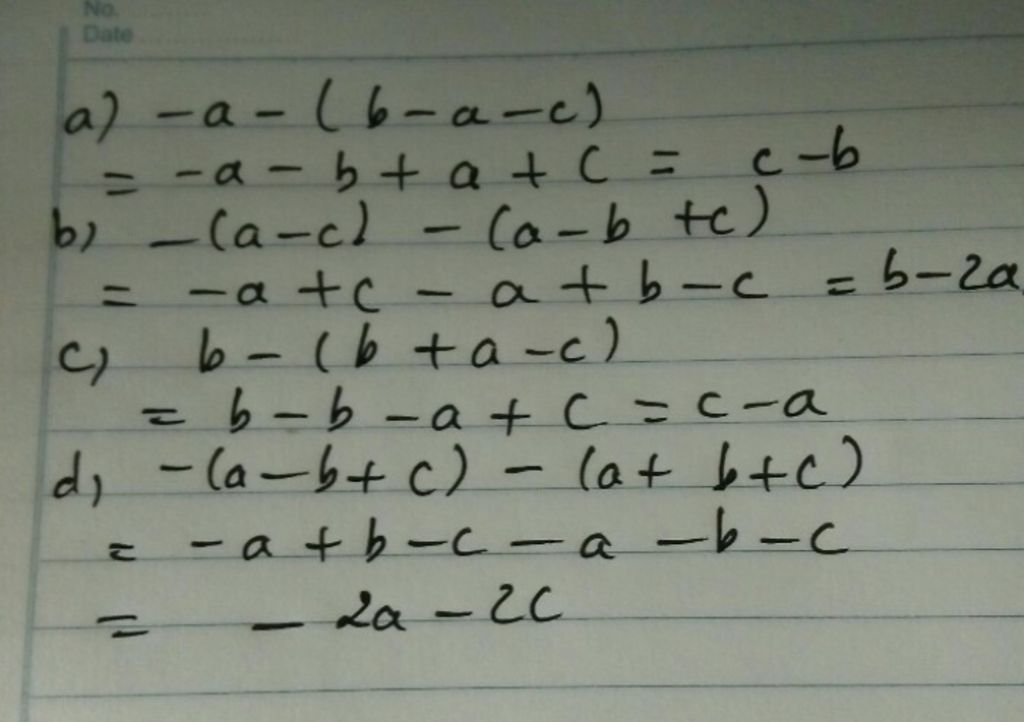 No.
Date
a) -a - (b - a - c)
= -a - b + a + c = c - b
b) -(a - c) - (a - b + c)
= -a + c - a + b - c = b - 2a
c) b - (b + a - c)
= b - b - a + c = c - a
d) -(a - b + c) - (a + b + c)
= -a + b - c - a - b - c
= -2a - 2c